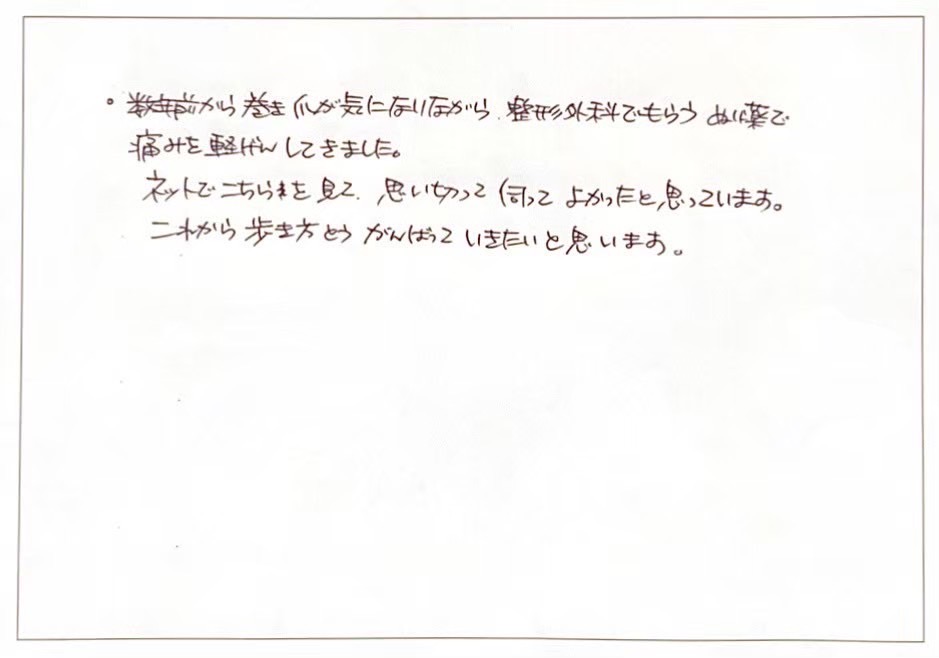 。数年前から巻き爪が気になりながら、整形外科でもらうぬり薬で
痛みを軽げんしてきました。
ネットでこちらを見て、思い切って伺ってよかったと思っています。
これから歩き方とうがんばっていきたいと思います。